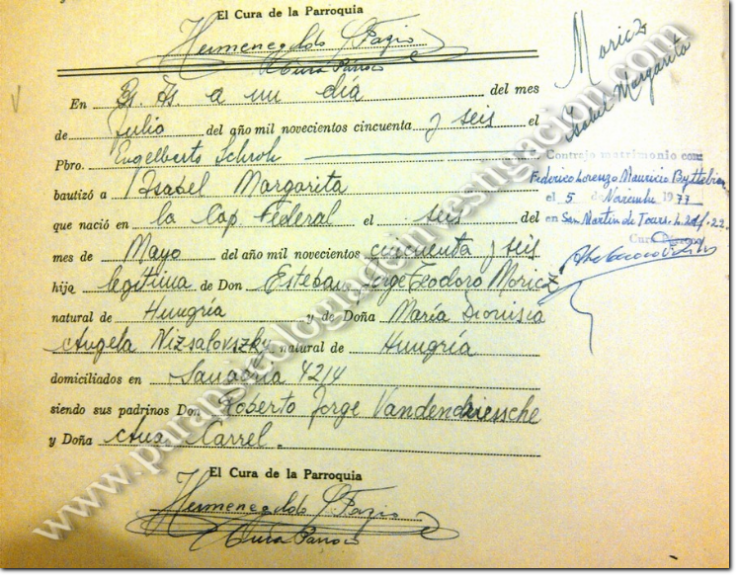 El Cura de la Parroquia
Hermenegildo Fazio
Cura Párroco
En Bs. As a un día del mes
de Julio del año mil novecientos cincuenta y seis el
Pbro. Engelberto Schroh
bautizó a Isabel Margarita
que nació en la Cap. Federal el seis del
mes de Mayo del año mil novecientos cincuenta y seis
hija legítima de Don Esteban Jorge Teodoro Moricz
natural de Hungría y de Doña María Dionisia
Angela Nizsalovszky natural de Hungría
domiciliados en 4214
siendo sus padrinos Don Roberto Jorge Vandendriessche
y Doña Ana Carrel.
El Cura de la Parroquia
Hermenegildo Fazio
Cura Párroco
Moricz
Isabel Margarita
Contrajo matrimonio con
Federico Lorenzo Mauricio
el 5 de Noviembre 1977
en San Martín de Tours.
Cura
www.parapsicologiaeinvestigacion.com